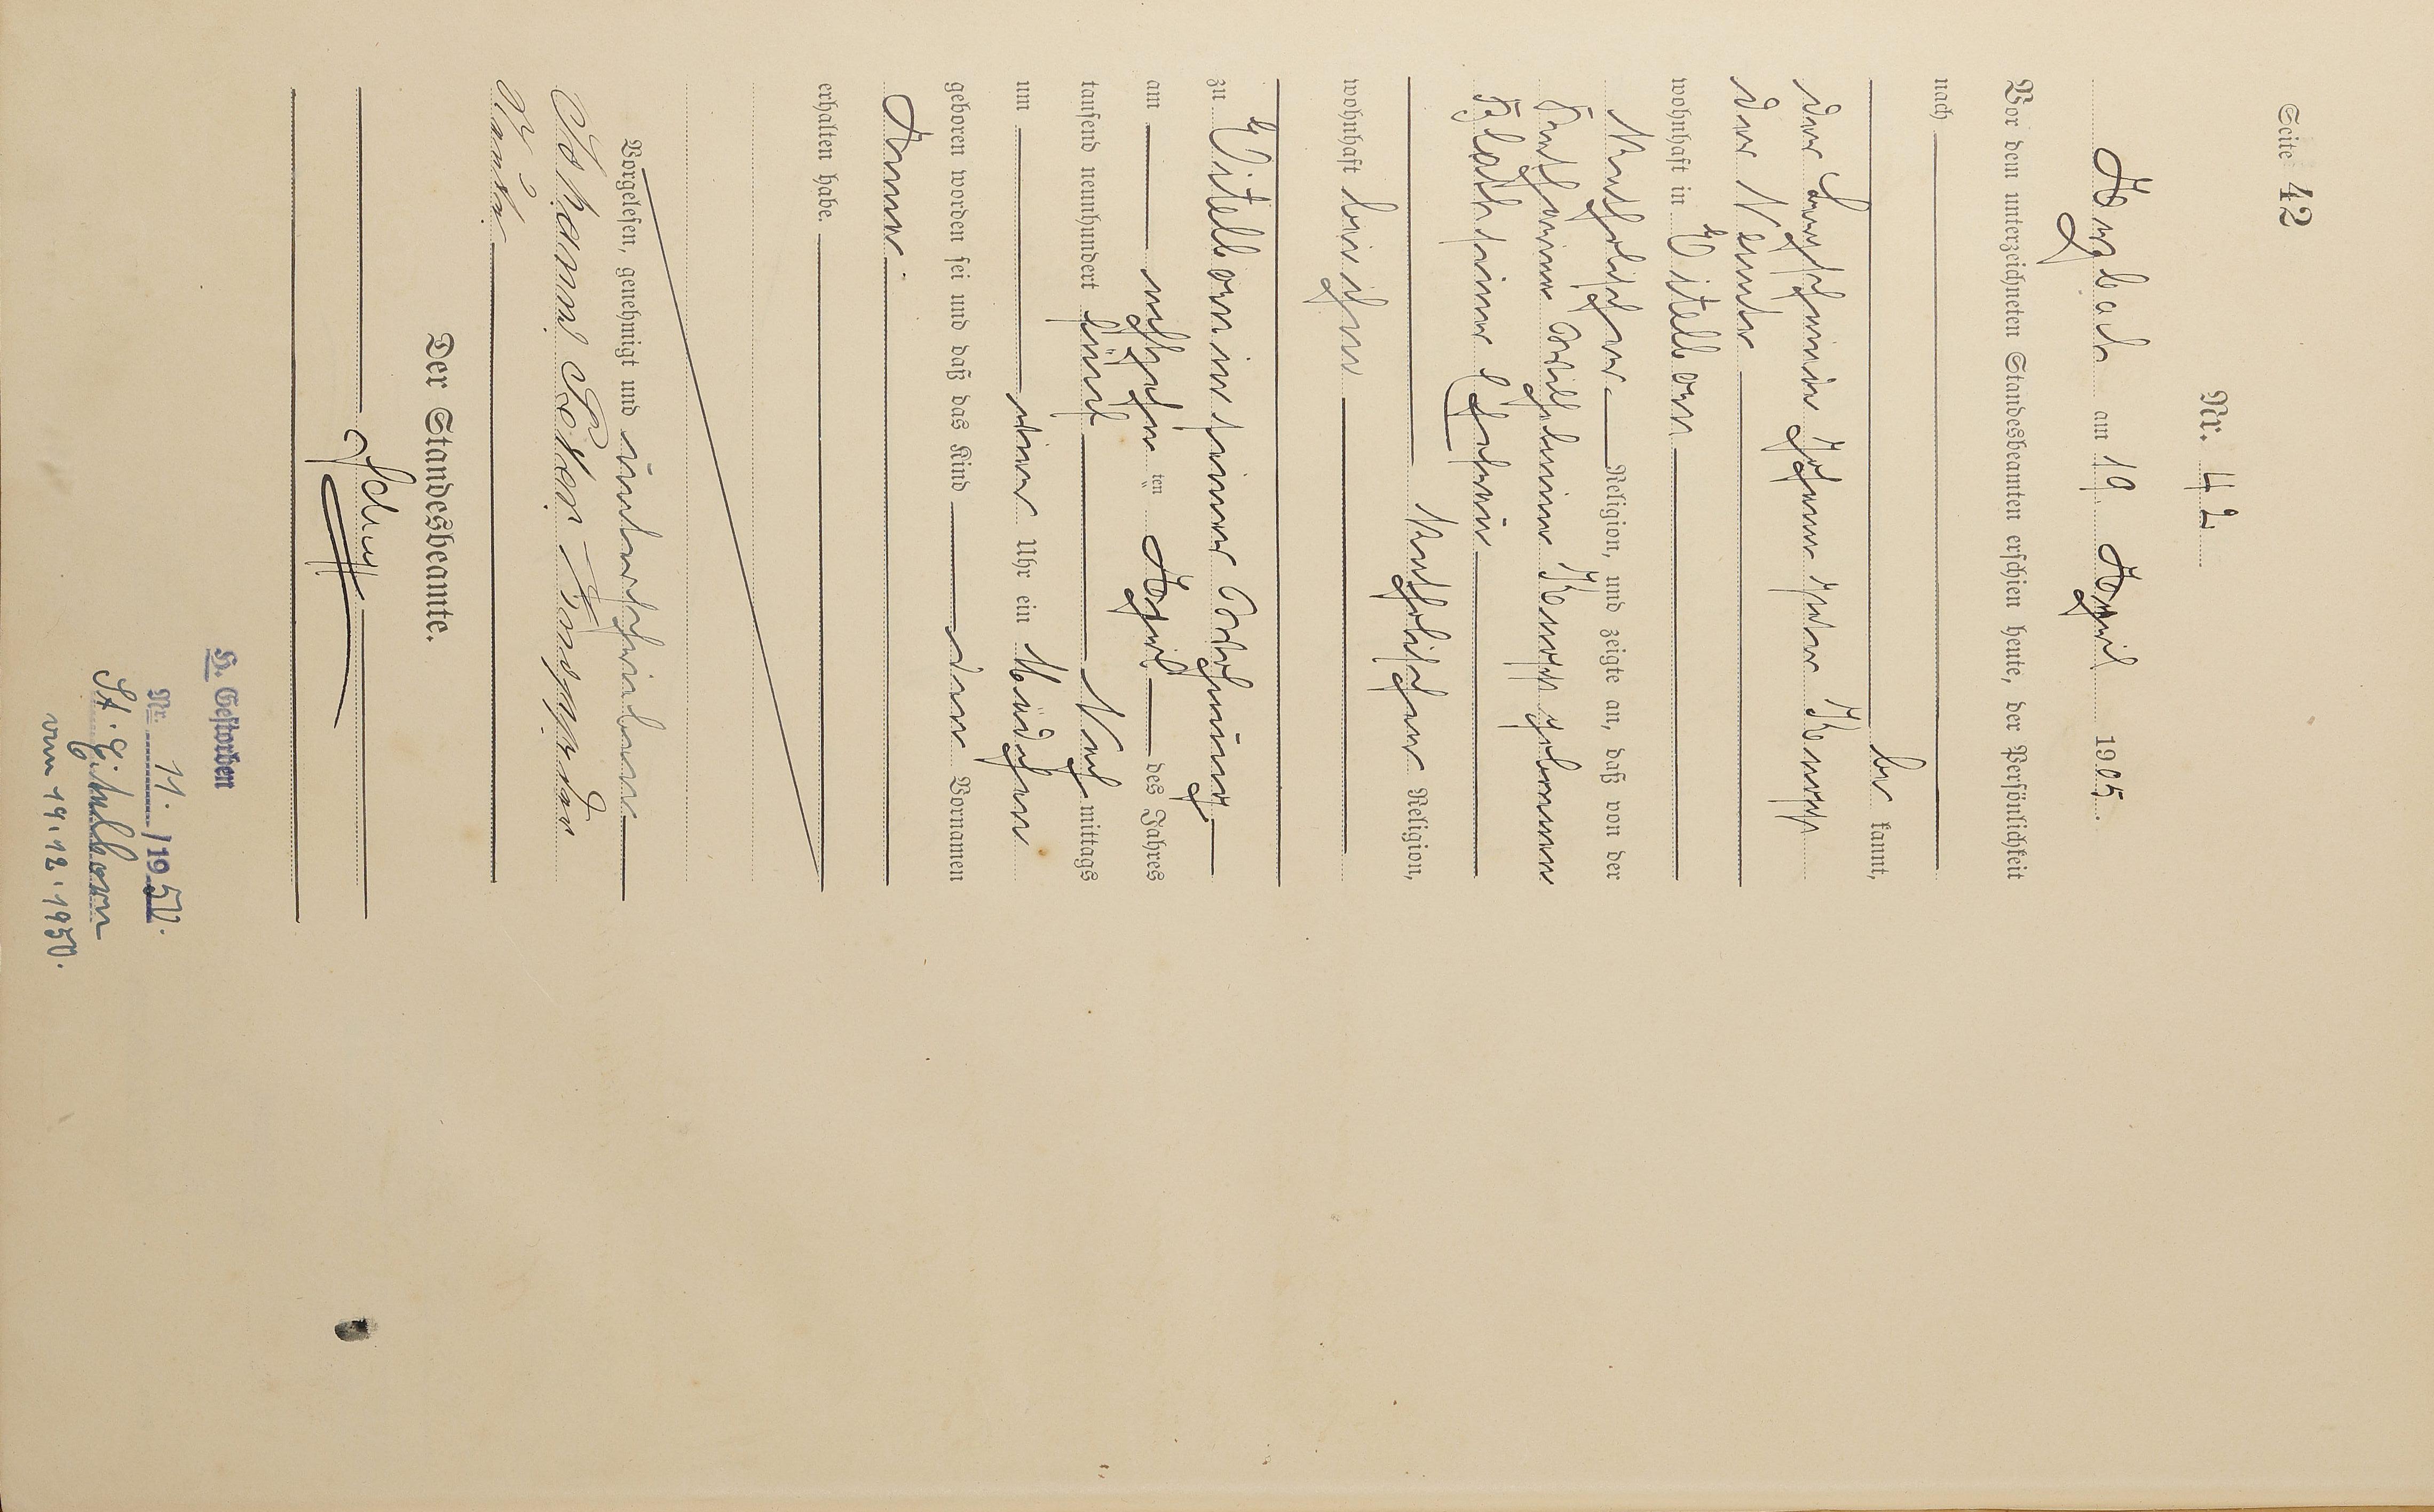 Seite 42
Nr. 42
Asbach am 19 April 1905
Vor dem unterzeichneten Standesbeamten erschien heute, der Persönlichkeit
nach
be kannt,
der Johann Peter
der Neunte
wohnhaft in Vitelborn
katholischer Religion, und zeigte an, daß von der
Katharina Wilhelmina geborenen
seiner Ehefrau
katholischer Religion,
wohnhaft bei ihm
zu Vitelborn in seiner Wohnung
am achtzehn ten April des Jahres
tausend neunhundert fünf Nach mittags
um Uhr ein Mädchen
geboren worden sei und daß das Kind den Vornamen
Anna
erhalten habe.
Vorgelesen, genehmigt und unterschrieben
Johann Peter der
Neunte.
Der Standesbeamte.
H. Gestorben
Nr. 11. /1950.
St.
vom 19.12.1950.